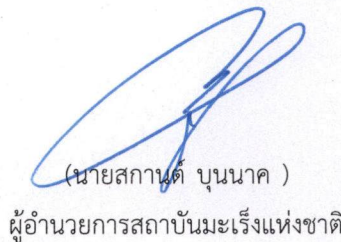 (นายสกานต์ บุนนาค )
ผู้อำนวยการสถาบันมะเร็งแห่งชาติ